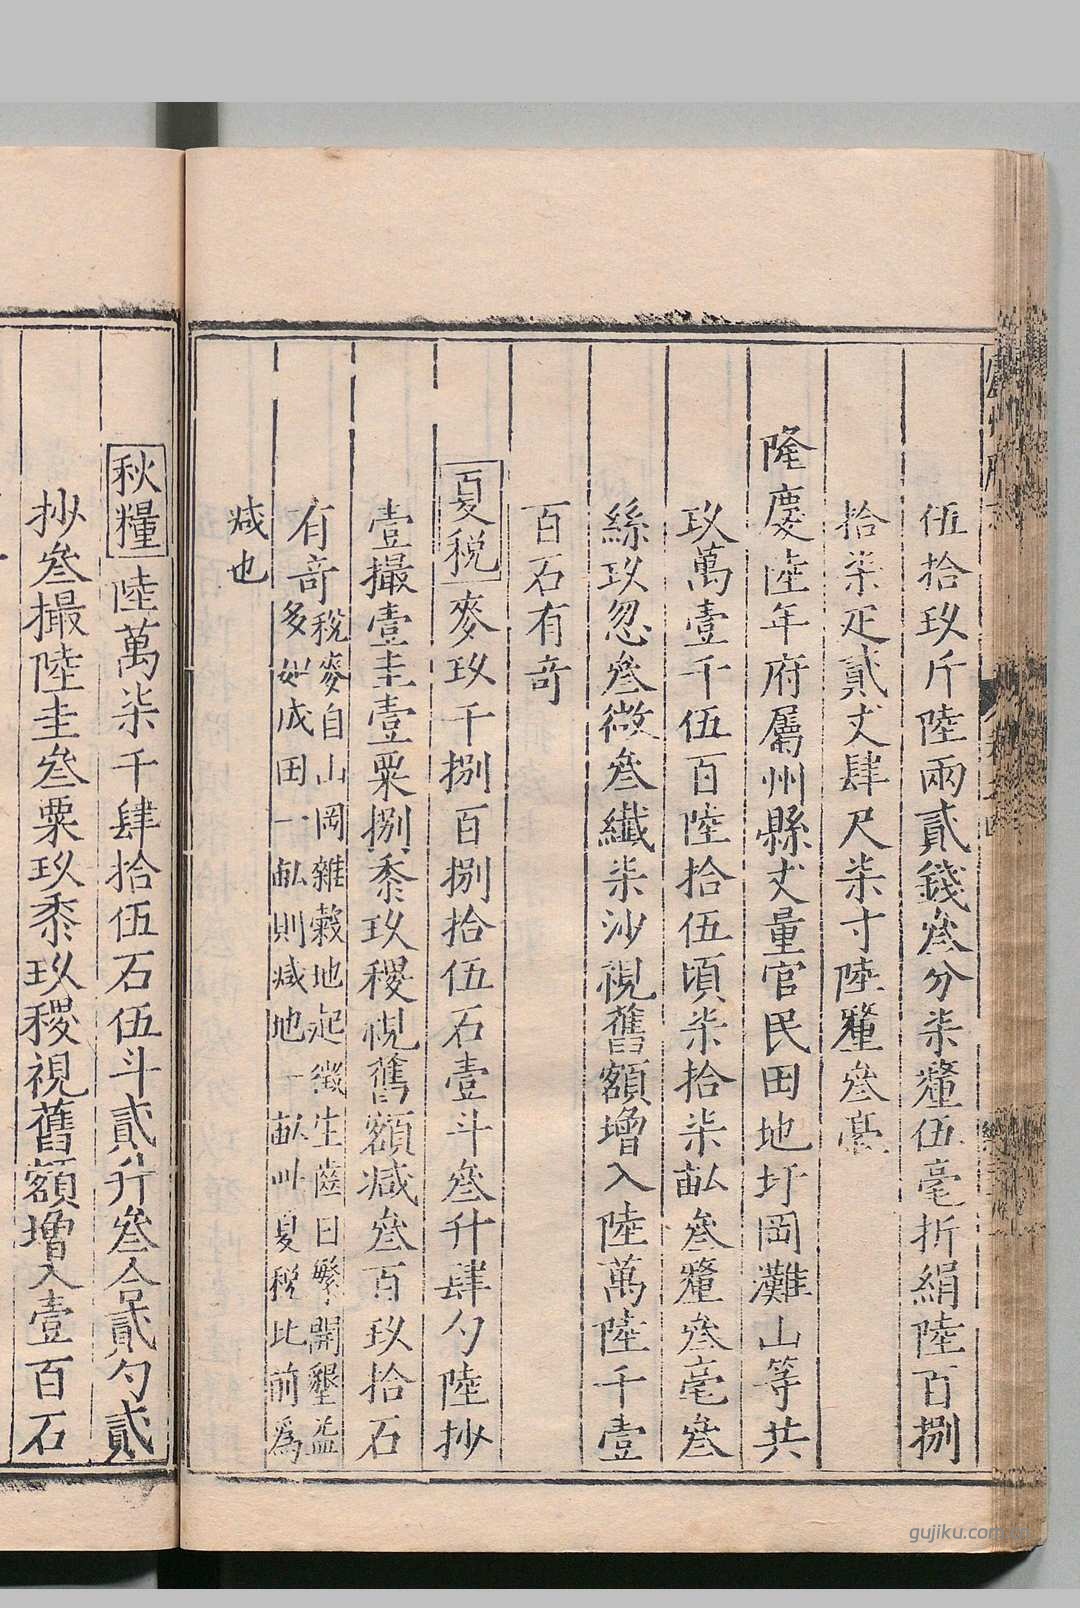 伍拾玖斤陸兩貳錢叄分柒釐伍毫折絹陸百捌
拾柒疋貳丈肆尺柒寸陸釐叄毫
隆慶陸年府屬州縣丈量官民田地圩岡灘山等共
玖萬壹千伍百陸拾伍頃柒拾柒畝叄釐叄毫叄
絲玖忽叄微叄纖柒沙視舊額增入陸萬陸千壹
百石有奇
夏稅麥玖千捌百捌拾伍石壹斗叄升肆勺陸抄
壹撮壹圭壹粟捌黍玖稷視舊額減叄百玖拾石
有奇稅麥自山岡雜穀地起徵生齒日繁開墾益
多如成田一畝則減地一畝此夏稅比前爲
減也
秋糧陸萬柒千肆拾伍石伍斗貳升叄合貳勺貳
抄叄撮陸圭叄粟玖黍玖稷視舊額增入壹百石
gujiku.com